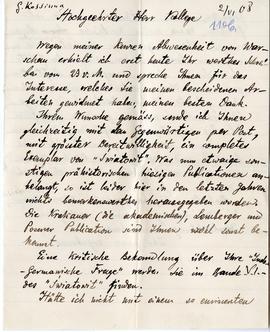 G. Kossinna
2/VI 08
1106.
Hochgeehrter Herr Kollege
Wegen meiner kurzen Abwesenheit von War-
schau erhielt ich erst heute Ihr werthes Schrei-
ben vom 23 v. M. und spreche Ihnen für das
Interesse, welches Sie meinen bescheidenen Ar-
beiten gewidmet haben, meinen besten Dank.
Ihrem Wunsche gemäss, sende ich Ihnen
gleichzeitig mit dem Gegenwärtigen per Post,
mit grösster Bereitwilligkeit, ein completes
Exemplar von "Światowit". Was nun etwaige son-
stigen prähistorischen hiesigen Publicationen an-
belangt, so ist leider hier in den letzten Jahren
nichts bemerkenswerthes herausgegeben worden.
Die Krakauer (die akademischen), Lemberger und
Posener Publication sind Ihnen wohl sonst be-
kannt.
Eine kritische Behandlung über Ihre "Indo-
germanische Frage" werden Sie im Bande VI.
des "Światowit" finden.
Hätte ich nicht mit einem so eminenten